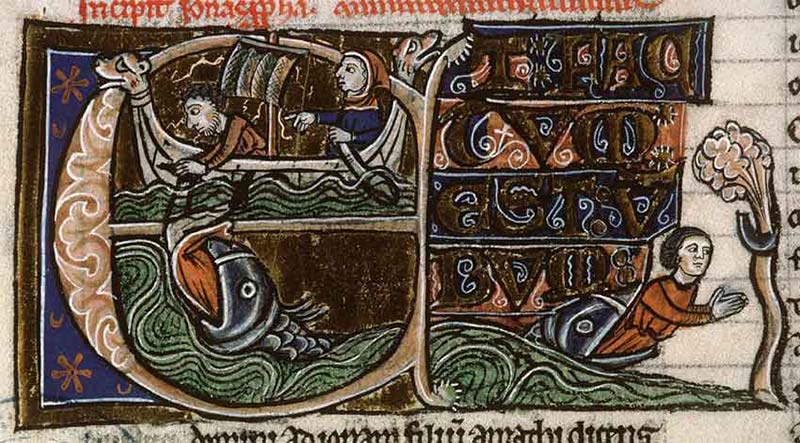 Incipit Ionas ppha.
ET FAC
TVM
EST.V
BVM:
ad ionam filiū amathi dicens